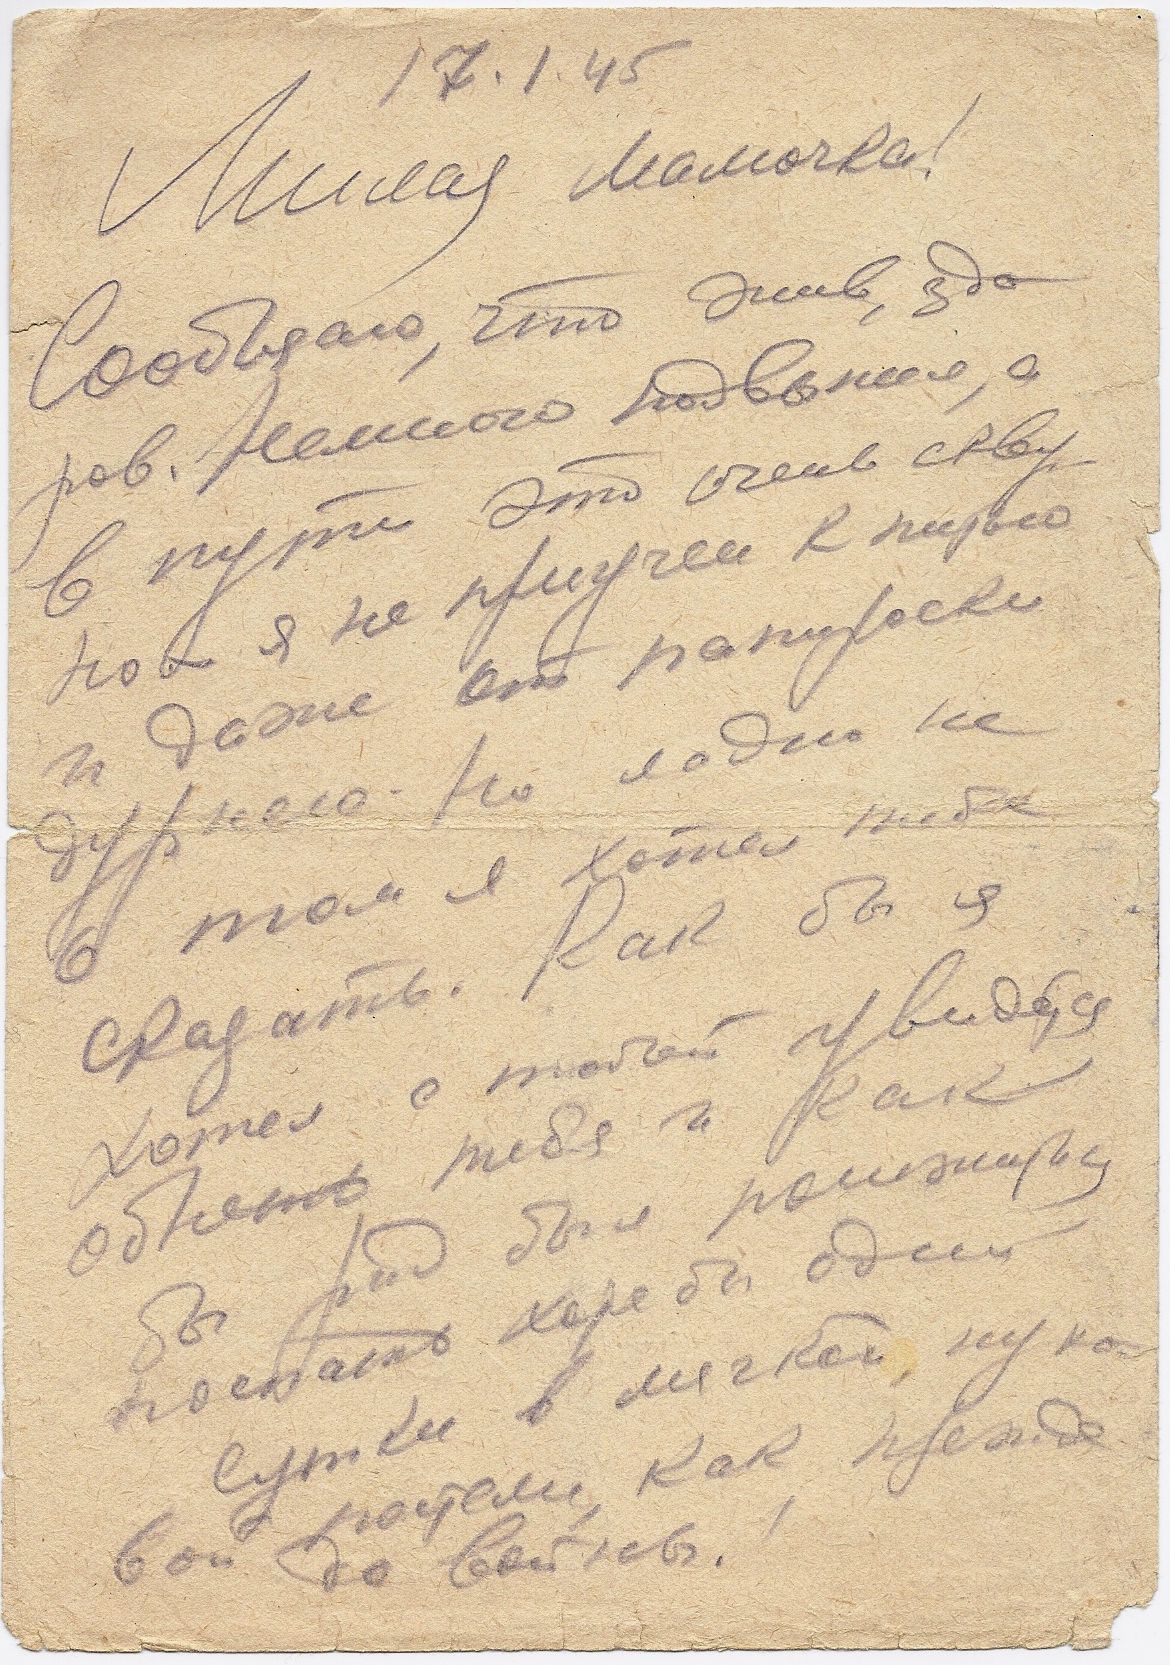 17.1.45
Милая Мамочка!
Сообщаю, что жив, здо
ров. Немного подвыпил, а
в пути это очень скву
но а я не приучен к питью
и даже от папироски
дурнею. Но ладно не
о том я хотел тебе
сказать. Как бы я
хотел с тобой увидется
обнять тебя и как
бы рад был
поспать хоре бы один
сутки в мягкой, пухо-
вой постели, как прежде
до войны!